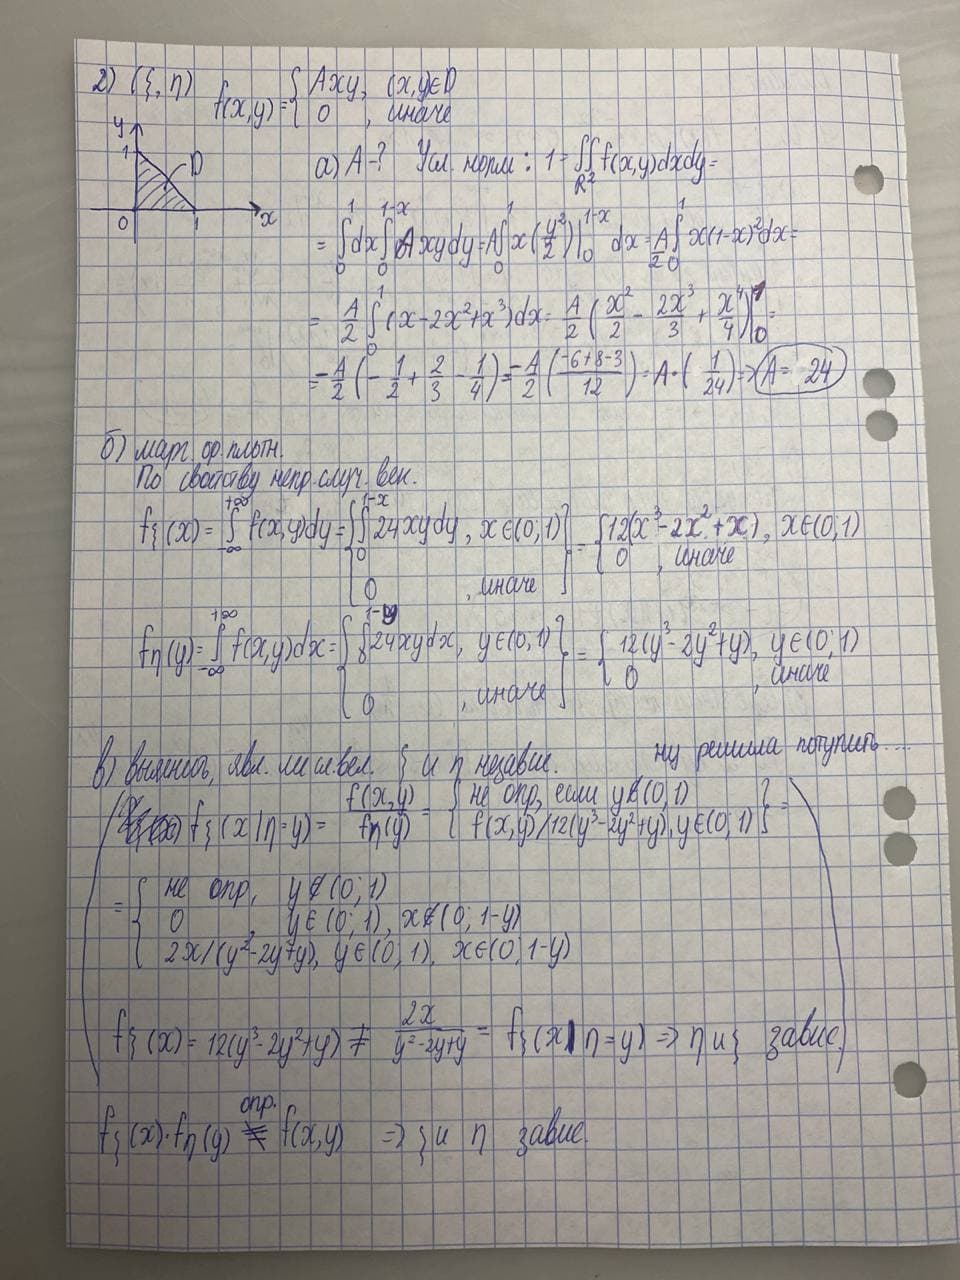 2) (ξ, η) f(x,y) = { Axy, (x,y)∈D
0, иначе
y
1
D
0 1 x
а) A-? Усл. норм: 1 = ∬_{R²} f(x,y)dxdy =
= ∫₀¹ dx ∫₀^{1-x} Axydy = A ∫₀¹ x (y²/2)|₀^{1-x} dx = A/2 ∫₀¹ x(1-x)²dx =
= A/2 ∫₀¹ (x-2x²+x³)dx = A/2 (x²/2 - 2x³/3 + x⁴/4)|₀¹ =
= -A/2 (-1/2 + 2/3 - 1/4) = -A/2 ((-6+8-3)/12) = A·(1/24) => A = 24
б) марг. ф. плотн.
По свойству непр. случ. век.
fξ(x) = ∫_{-∞}^{+∞} f(x,y)dy = { ∫₀^{1-x} 24xydy, x∈(0;1) } = { 12(x³-2x²+x), x∈(0;1)
0, иначе 0, иначе
fη(y) = ∫_{-∞}^{+∞} f(x,y)dx = { ∫₀^{1-y} 24xydx, y∈(0;1) } = { 12(y³-2y²+y), y∈(0;1)
0, иначе 0, иначе
в) выяснить, явл. ли сл. вел. ξ и η независ. ну решила поступить....
fξ(x|η=y) = f(x,y)/fη(y) = { не опр, если y∉(0;1)
f(x,y)/12(y³-2y²+y), y∈(0;1) } =
= { не опр, y∉(0;1)
0, y∈(0;1), x∉(0;1-y)
2x/(y²-2y+y), y∈(0;1), x∈(0;1-y)
fξ(x) = 12(y³-2y²+y) ≠ 2x/(y²-2y+y) = fξ(x|η=y) => η и ξ завис.
fξ(x)·fη(y) опр. ≠ f(x,y) => ξ и η завис.